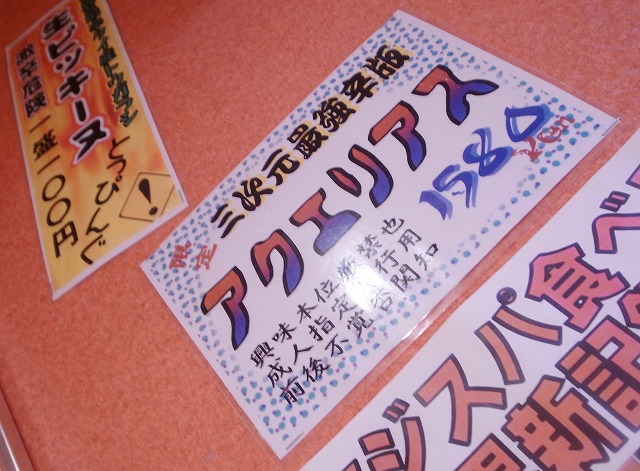 生ピッキーヌ
とっぴんぐ
激辛危険一釜一〇〇円
三次元最強辛版
限定
アクエリアス
1580
yen
興味本位厳禁也
成人指定 行用
前後不覚 否関知
ジスパ食べ
新記